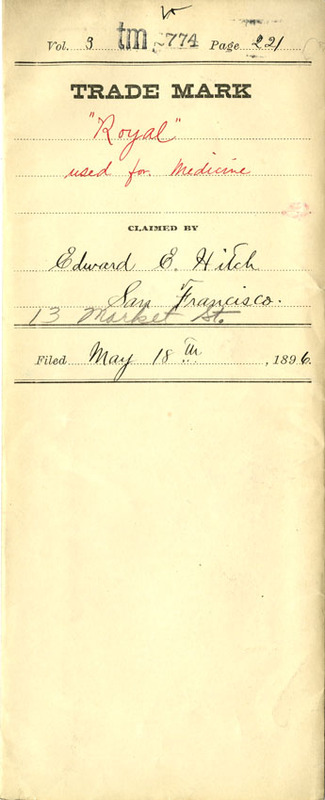 Vol. 3 tm 774 Page 221
TRADE MARK
"Royal"
used for Medicine
CLAIMED BY
Edward E. Hitch
San Francisco.
13 Market St.
Filed May 18th, 1896.